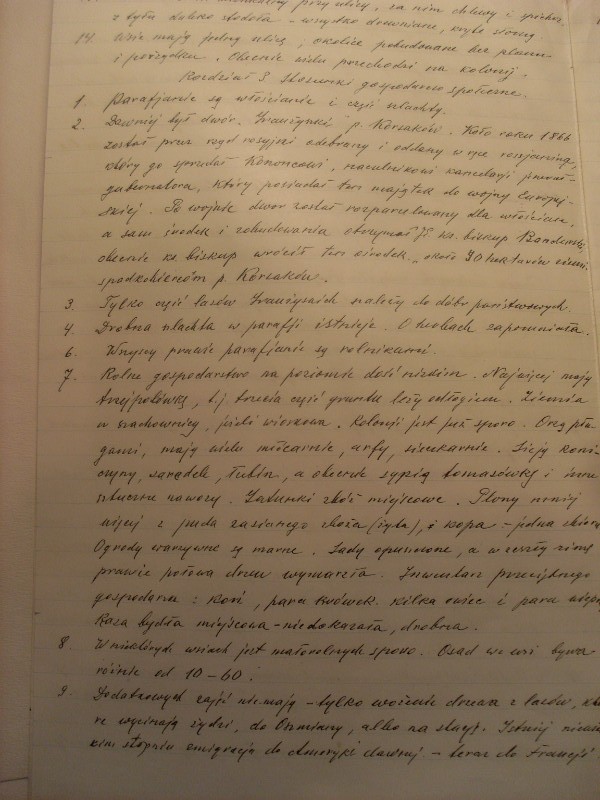 przy ulicy, za nim chlewy i spichrz,
z tyłu daleko stodoła – wszystko drewniane, kryte słomą.
14. Wsie mają jedną ulicę, okolice pobudowane bez planu
i porządku. Obecnie wielu przechodzi na kolonij.
Rozdział 5. Stosunki gospodarczo społeczne.
1. Parafjanie są włościanie i część szlachty.
2. Dawniej był dwór p. Korsaków. Koło roku 1866
został przez rząd rosyjski odebrany i oddany w ręce rosjanina,
który go sprzedał naczelnikowi kancelarji
gubernatora, który posiadał ten majątek do wojny Europej-
skiej. Po wojnie dwór został rozparcelowany dla włościan,
a sam środek i zabudowania otrzymał ks. biskup Bandurski,
obecnie ks. biskup wrócił ten ośrodek około 90 hektarów ziemi
spadkobiercom p. Korsaków.
3. Tylko część lasów należy do dóbr państwowych.
4. Drobna szlachta w parafji istnieje. O herbach zapomniała.
6. Wszyscy prawie parafjanie są rolnikami.
7. Rolne gospodarstwo na poziomie dość nizkim. Najwięcej mają
trzejpolówkę, t.j. trzecia część gruntu leży odłogiem. Ziemia
w szachownicy, jeśli wioskowa. Kolonji jest już sporo. Orzą płu-
gami, mają wielu młocarnie, arfy, sieczkarnie. Sieją koni-
czynę, saradelę, łubin, a obecnie sypią tomasówkę i inne
sztuczne nawozy. Gatunki zbóż miejscowe. Plony mniej
więcej z puda zasianego zboża (żyta), kopa – jedna
Ogrody warzywne są marne. Sady opuszczone, a w zeszłą zimę
prawie połowa drzew wymarzła. Inwentarz przeciętnego
gospodarza: koń, para krówek, kilka owiec i para wieprz
Rasa bydła miejscowa – niedokazała, drobna.
8. W niektórych wsiach jest małorolnych sporo. Osad we wsi bywa
różnie od 10–60.
9. Dodatkowych zajęć nie mają – tylko wożenie drzewa z lasów, któ-
re wycinają żydzi, do Oszmiany, albo na stacje. Istnieje w
kim stopniu emigracja do Ameryki dawniej – teraz do Francji